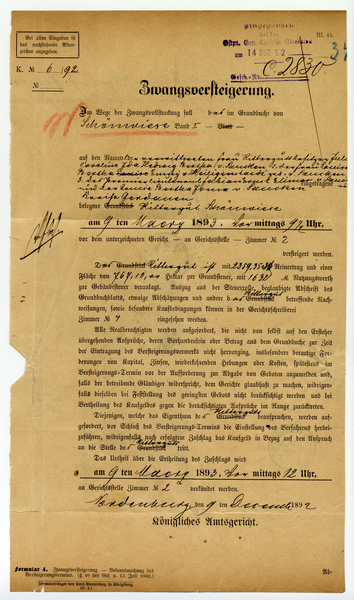 Bei allen Eingaben ist
das nachstehende Akten-
zeichen anzugeben.
K. № 6/92
№
Eingegangen
14 DEC 92
Gesch.-Nr. C. 2830
III. 46.
Zwangsversteigerung.
Im Wege der Zwangsvollstreckung soll das im Grundbuche von
Schönwiese Band I - Blatt
auf den Namen
eingetragene
Kreis Gerdauen
belegene Grundstück Rittergut Schönwiese
am 9ten Maerz 1893, Vormittags 9½ Uhr,
vor dem unterzeichneten Gericht — an Gerichtsstelle — Zimmer № 2
versteigert werden.
Das Grundstück Rittergut ist mit Reinertrag und einer
Fläche von Hektar zur Grundsteuer, mit 1630 M. Nutzungswerth
zur Gebäudesteuer veranlagt. Auszug aus der Steuerrolle, beglaubigte Abschrift des
Grundbuchblatts, etwaige Abschätzungen und andere das Rittergut Grundstück betreffende Nach-
weisungen, sowie besondere Kaufbedingungen können in der Gerichtsschreiberei
Zimmer № 4 eingesehen werden.
Alle Realberechtigten werden aufgefordert, die nicht von selbst auf den Ersteher
übergehenden Ansprüche, deren Vorhandensein oder Betrag aus dem Grundbuche zur Zeit
der Eintragung des Versteigerungsvermerks nicht hervorging, insbesondere derartige Forde-
rungen von Kapital, Zinsen, wiederkehrenden Hebungen oder Kosten, spätestens im
Versteigerungs-Termin vor der Aufforderung zur Abgabe von Geboten anzumelden und,
falls der betreibende Gläubiger widerspricht, dem Gerichte glaubhaft zu machen, widrigen-
falls dieselben bei Feststellung des geringsten Gebots nicht berücksichtigt werden und bei
Vertheilung des Kaufgeldes gegen die berücksichtigten Ansprüche im Range zurücktreten.
Diejenigen, welche das Eigenthum des Ritterguts Grundstücks beanspruchen, werden auf-
gefordert, vor Schluß des Versteigerungs-Termins die Einstellung des Verfahrens herbei-
zuführen, widrigenfalls nach erfolgtem Zuschlag das Kaufgeld in Bezug auf den Anspruch
an die Stelle des Ritterguts Grundstücks tritt.
Das Urtheil über die Ertheilung des Zuschlags wird
am 9ten Maerz 1893, Vormittags 12 Uhr,
an Gerichtsstelle Zimmer № 2 verkündet werden.
Nordenburg, den 9ten December 1892
Königliches Amtsgericht.
Formular 4. Zwangsversteigerung. — Bekanntmachung des
Versteigerungstermins. (§ 40 des Ges. v. 13. Juli 1883.)